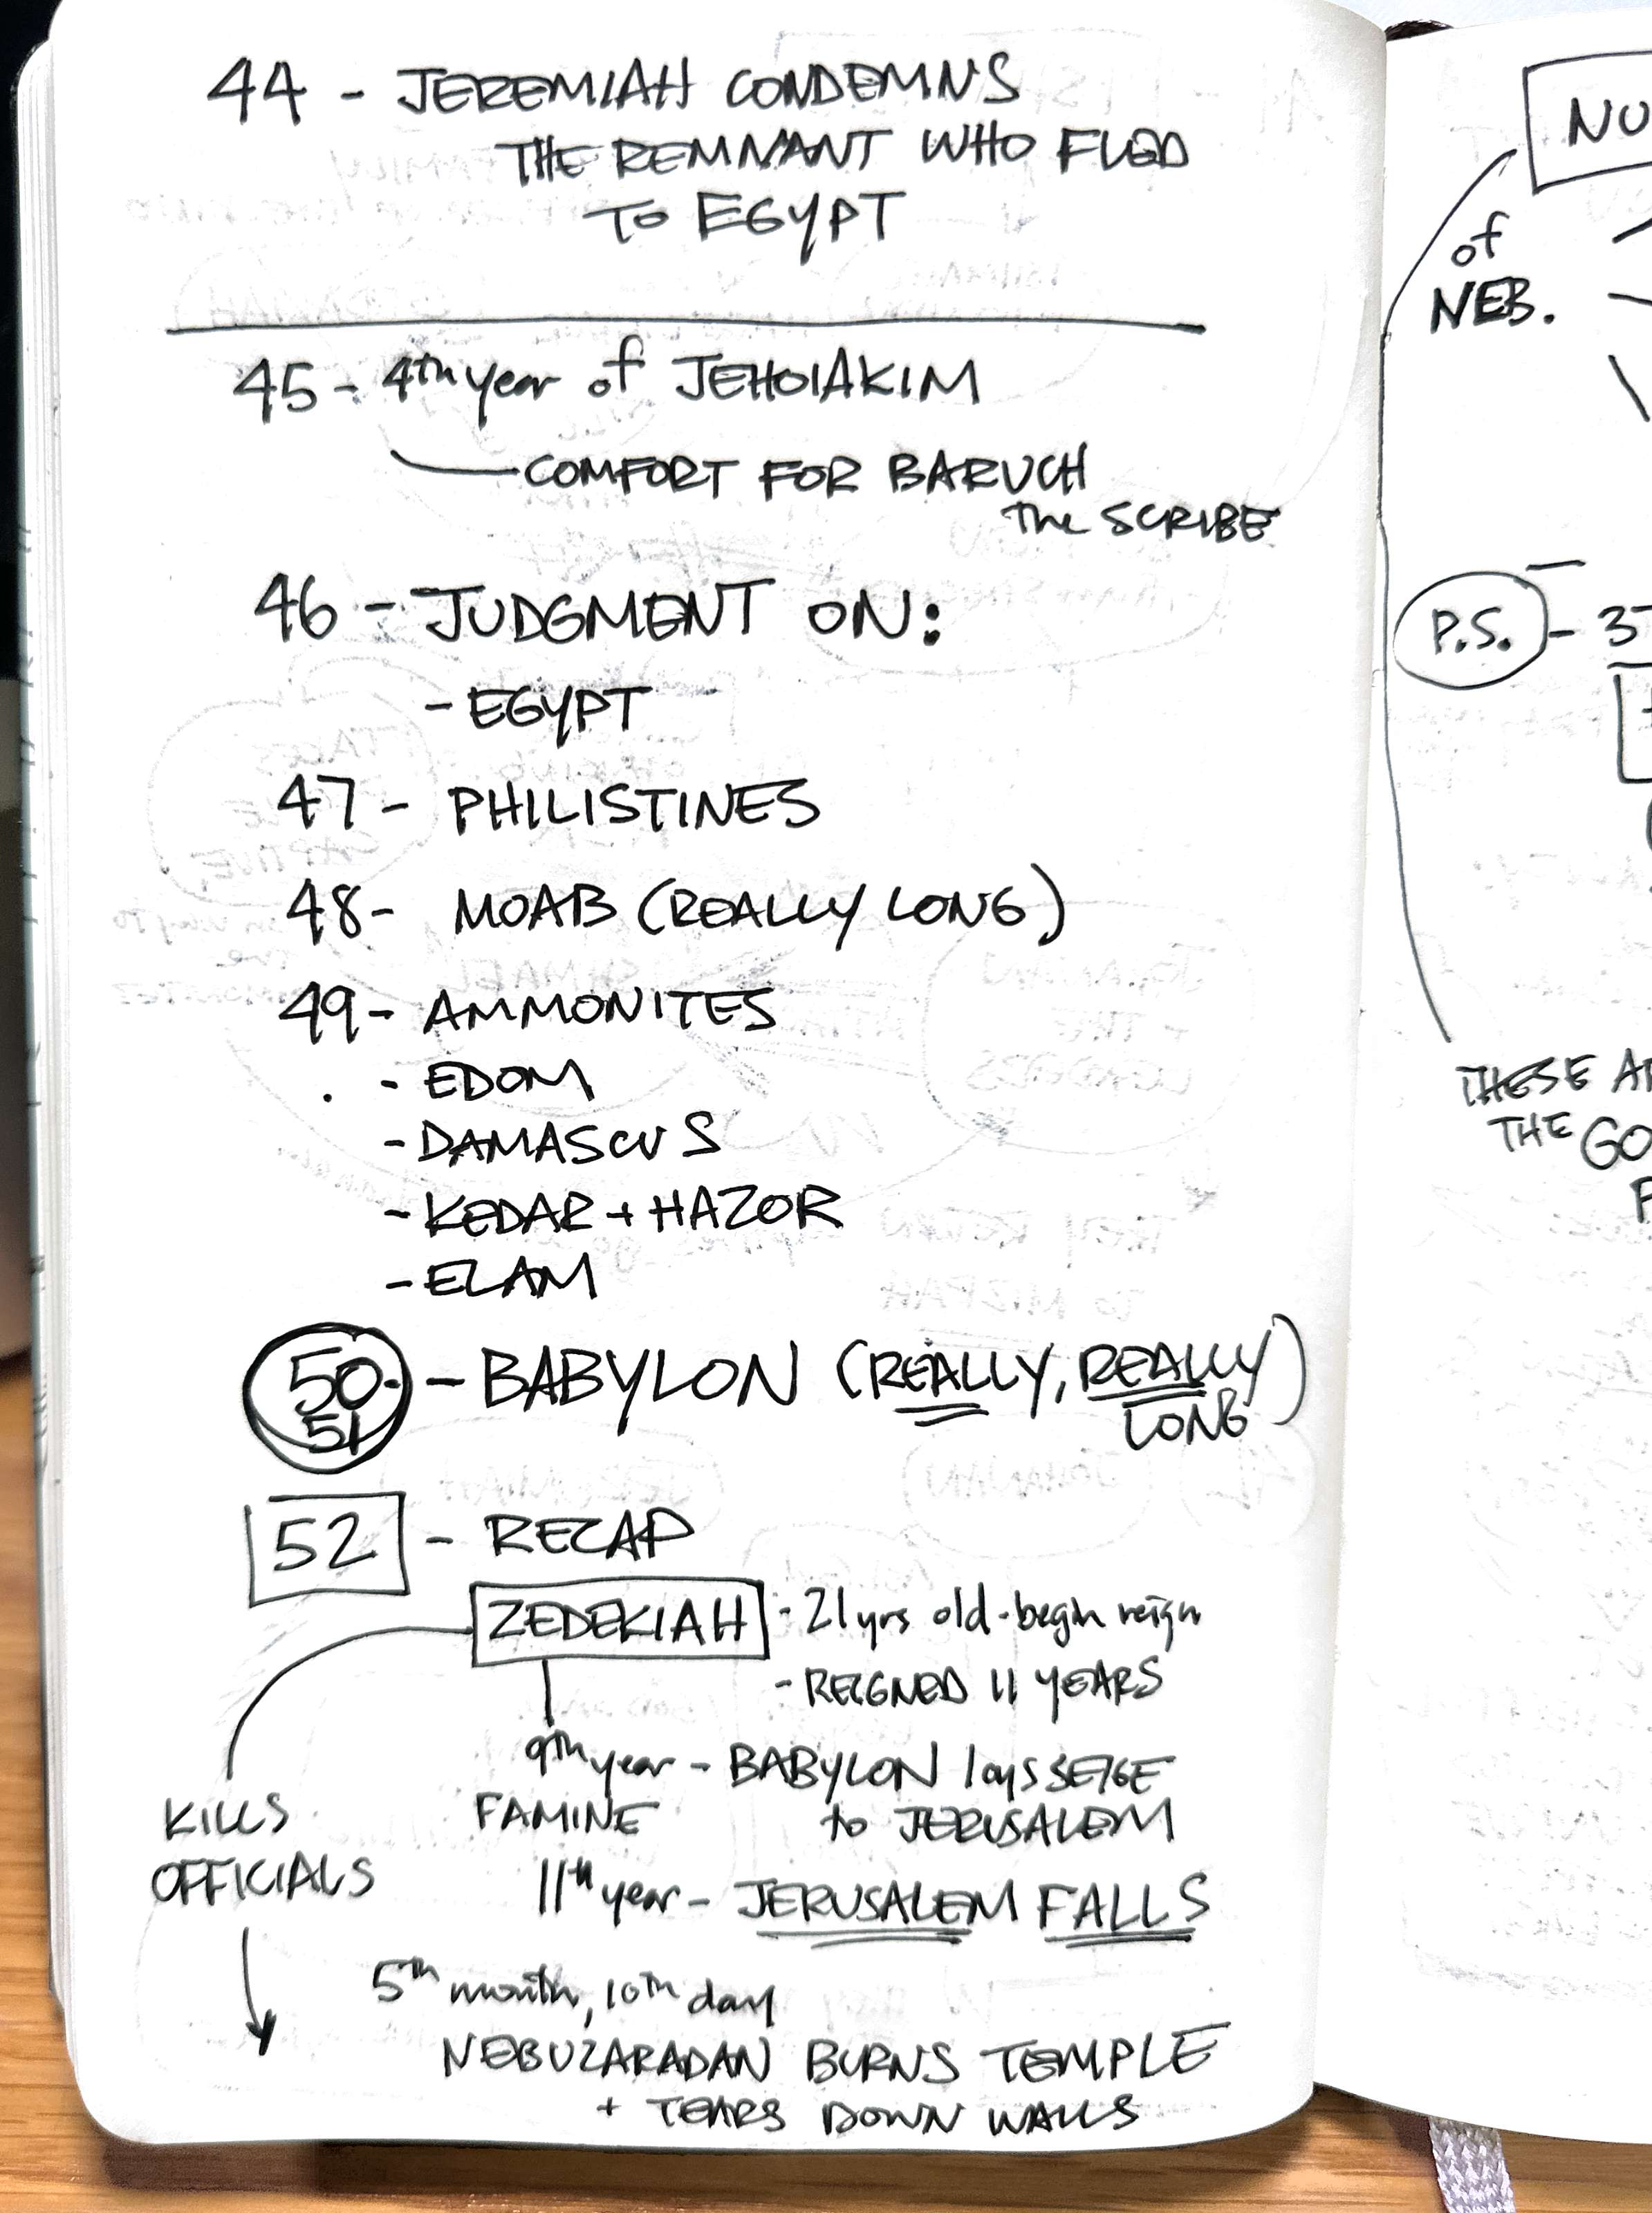 44 - JEREMIAH CONDEMNS
THE REMNANT WHO FLED
TO EGYPT
45 - 4th year of JEHOIAKIM
COMFORT FOR BARUCH
the SCRIBE
46 - JUDGMENT ON:
- EGYPT
47 - PHILISTINES
48 - MOAB (REALLY LONG)
49 - AMMONITES
- EDOM
- DAMASCUS
- KEDAR + HAZOR
- ELAM
50 - BABYLON (REALLY, REALLY
51
LONG)
52 - RECAP
ZEDEKIAH - 21 yrs old - begin reign
- REIGNED 11 YEARS
9th year - BABYLON lays SEIGE
FAMINE to JERUSALEM
KILLS
OFFICIALS
11th year - JERUSALEM FALLS
5th month, 10th day
NEBUZARADAN BURNS TEMPLE
+ TEARS DOWN WALLS
NU
of
NEB.
P.S. - 3
THESE A
THE GO